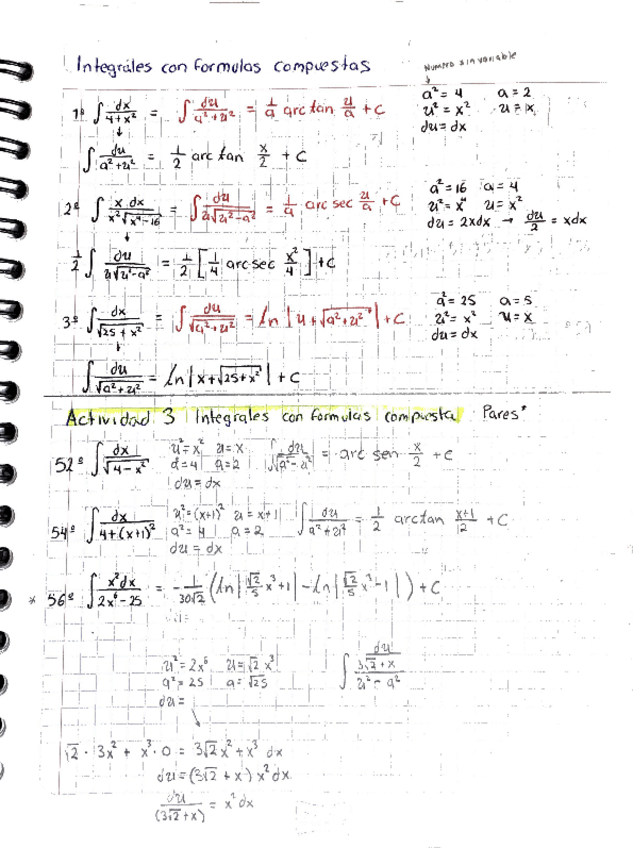 Integráles con formulas compuestas
Numero sin variable
↓
1º ∫ dx/(4+x²) = ∫ du/(a²+u²) = 1/a arc tan u/a + C
a² = 4   a = 2
u² = x²   u = x
du = dx
↓
∫ du/(a²+u²) = 1/2 arc tan x/2 + C
2º ∫ x dx/(x²√(x⁴-16)) = ∫ du/(u√(u²-a²)) = 1/a arc sec u/a + C
a² = 16   a = 4
u² = x⁴   u = x²
du = 2xdx → du/2 = xdx
↓
1/2 ∫ du/(u√(u²-a²)) = 1/2 [1/4 arc sec x²/4] + C
3º ∫ dx/√(25+x²) = ∫ du/√(a²+u²) = ln |u+√(a²+u²)| + C
a² = 25   a = 5
u² = x²   u = x
du = dx
↓
∫ du/√(a²+u²) = ln |x+√(25+x²)| + C
Actividad 3 Integrales con formulas compuesta Pares*
52º ∫ dx/√(4-x²)   u² = x²   u = x   ∫ du/√(a²-u²) = arc sen x/2 + C
a² = 4   a = 2
du = dx
54º ∫ dx/(4+(x+1)²)   u² = (x+1)²   u = x+1   ∫ du/(a²+u²) = 1/2 arctan (x+1)/2 + C
a² = 4   a = 2
du = dx
* 56º ∫ x²dx/(2x⁶-25) = -1/(30√2) (ln|√2/5 x³+1| - ln|√2/5 x³-1|) + C
u² = 2x⁶   u = √2 x³   ∫ (du/(3√2+x))/(u²-a²)
a² = 25   a = √25
du =
√2 · 3x² + x³ · 0 = 3√2 x² + x³ dx
du = (3√2 + x) x² dx
du/(3√2+x) = x² dx